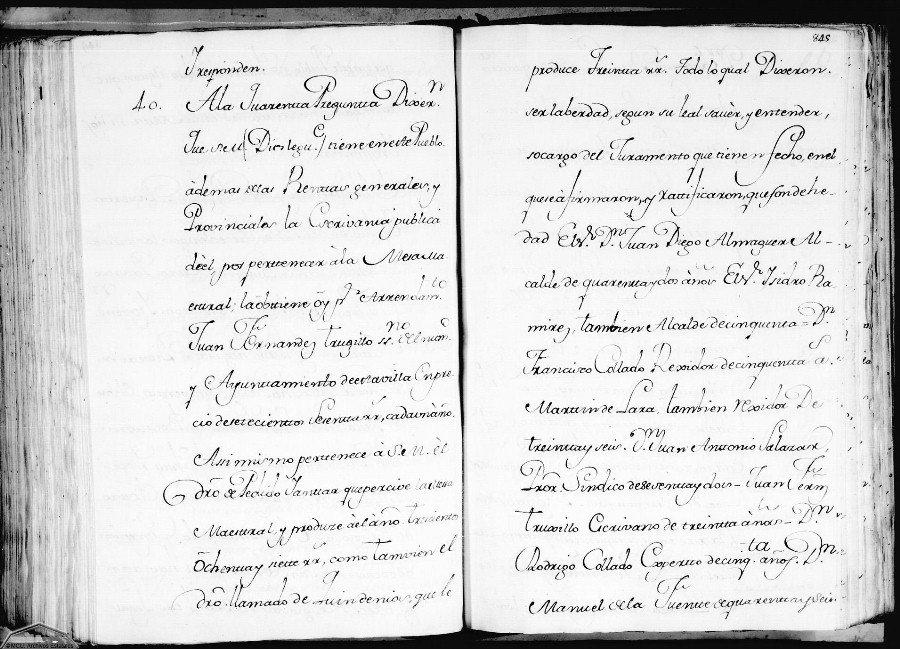 Y responden.
40. A la Quarenta Pregunta Dixer.n
Que su M (Dios le gu.e) tiene en este Pueblo
àdemas de las Rentas generales, y
Provinciales la Escrivania publica
de èl, pos pertenecer à la Mesa Ma
estral; la òbtiene òy p.r Arrendam.to
Juan Frñ Fernandez trugillo ss.no del num.o
y Ayuntamiento de esta villa En pre-
cio de setecientos sesenta rr, cada un año.
Assimismo pertenece à S. M. èl
dro. de Pedido S Januar que percive la Mesa
Maestral, y produze àl año trescientos
òchenta y siete rr, como tamvien el
dro. llamado de Quindenios, que le
848
produce Treinta rr. Todo lo qual Dixeron.
ser la berdad, segun su leal savèr, y entender,
so cargo del Juramento que tienen fecho, en el
que se àfirmaron, y Ratificaron, que son de he-
dad El s.r D.n Juan Diego Almaguer Al-
calde de quarenta y dos años El s.r Isidro Ra
mirez, tambien Alcalde de cinquenta = D.n
Francisco Collado Rexidor de cinquenta
Martin de Lara, tambien Rexidor De
treinta y seis. D.n Juan Antonio Salazar,
Pror. Sindico de sesenta y dos - Juan Ferrñ
truxillo Escrivano de treinta años - D.n
Rodrigo Collado Experto de cinq.ta años. D.n
Manuel de la Fuente de quarenta y seis-
©MCU. Archivos Estatales